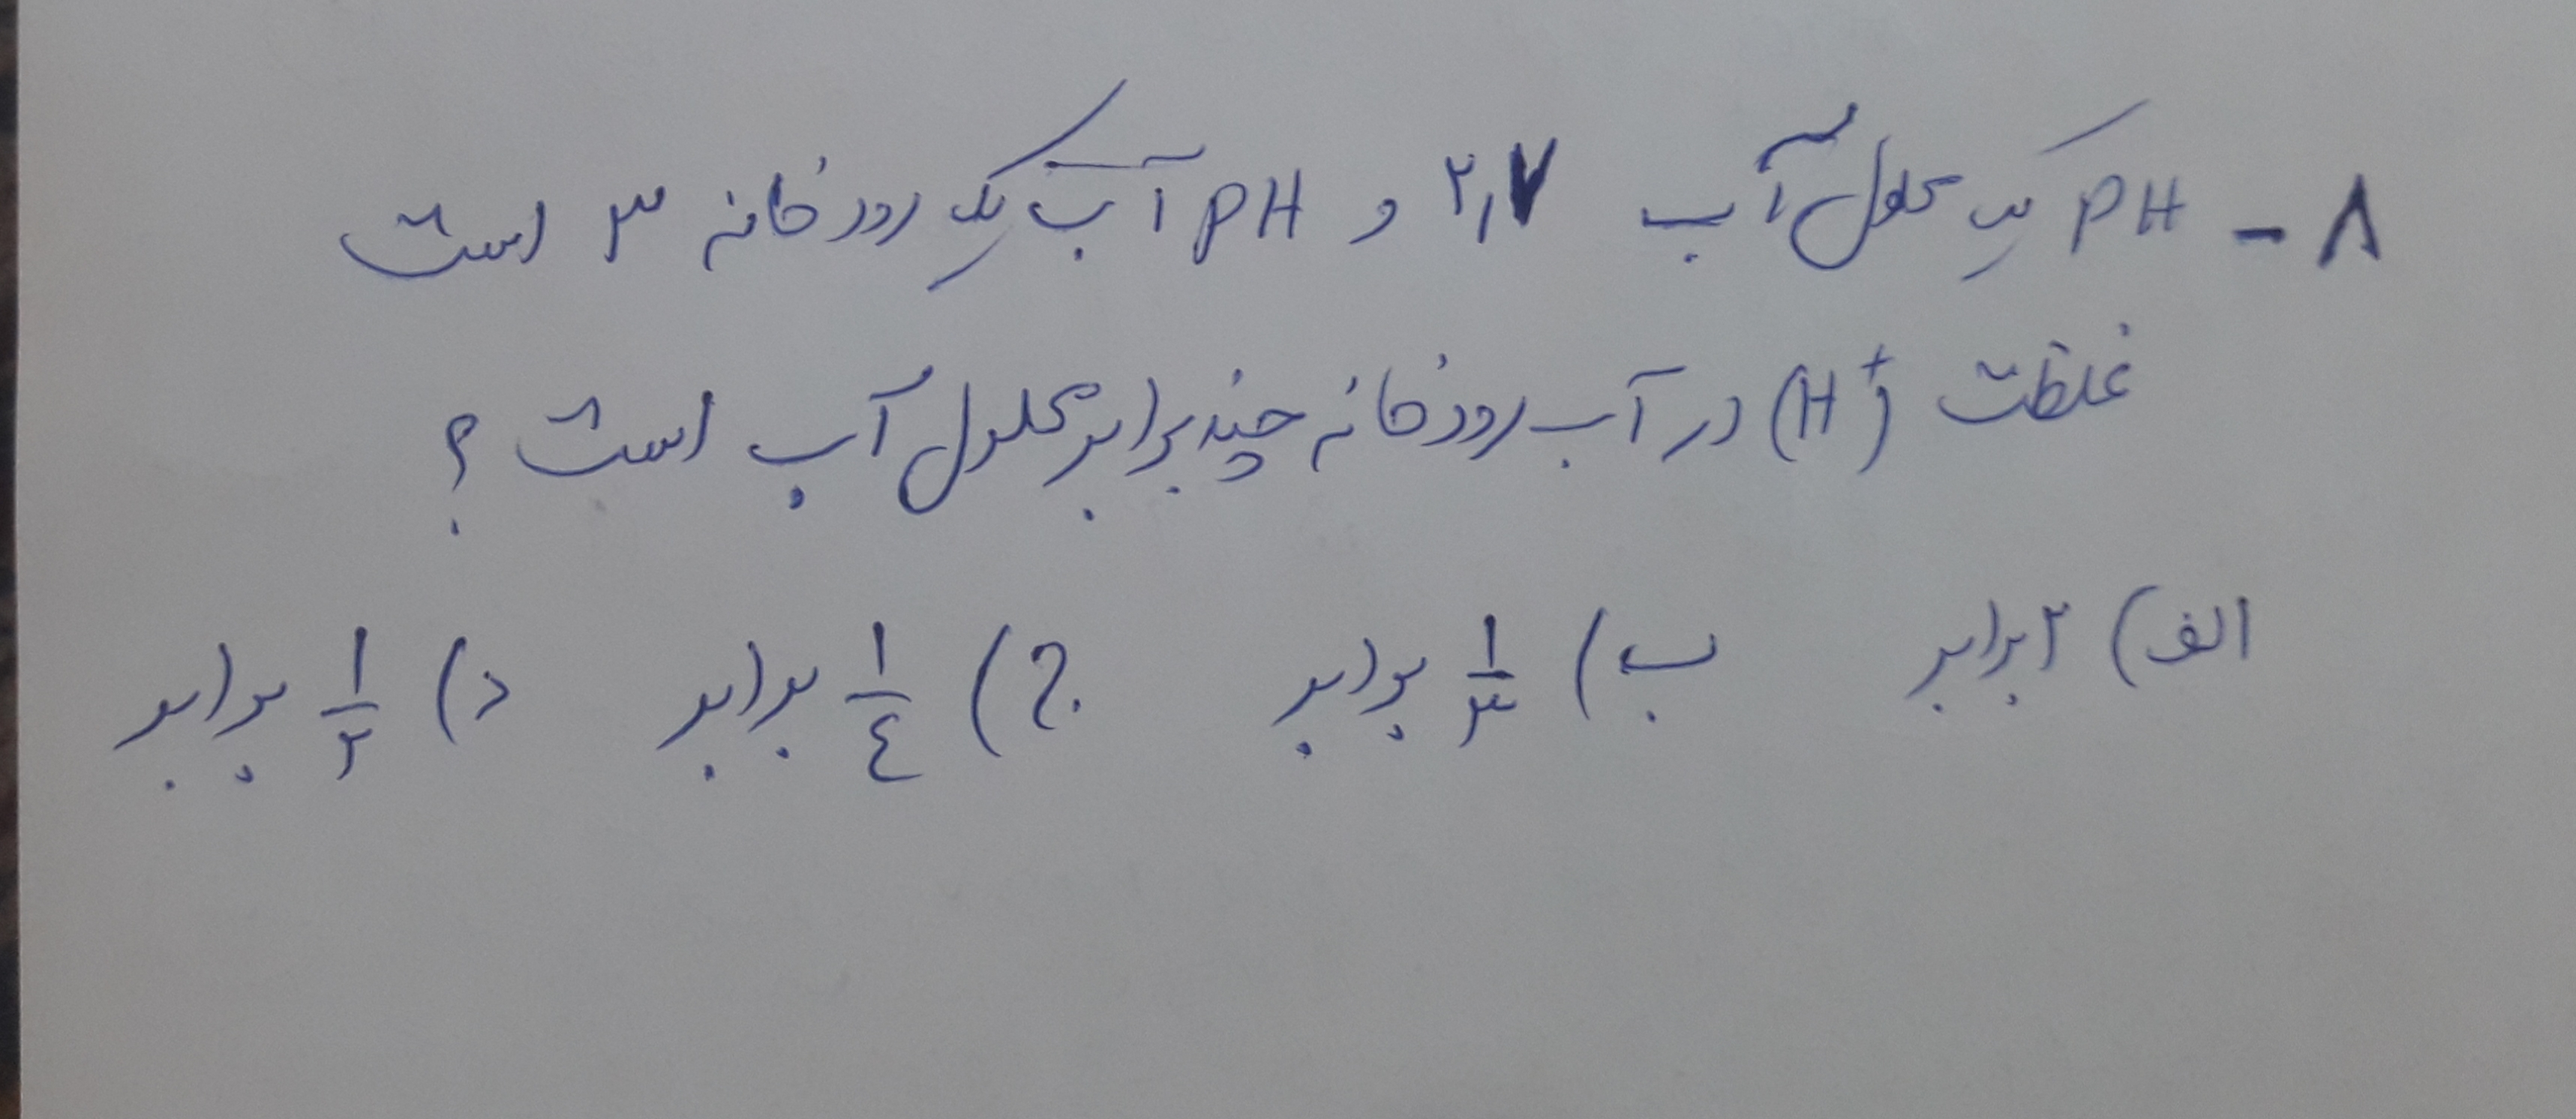 ۸ - PH یک محلول آب ۲,۷ و PH آب یک رودخانه ۳ است
غلظت (H⁺) در آب رودخانه چند برابر محلول آب است ؟
الف) ۲ برابر ب) ۱/۳ برابر ج) ۱/٤ برابر د) ۱/۲ برابر